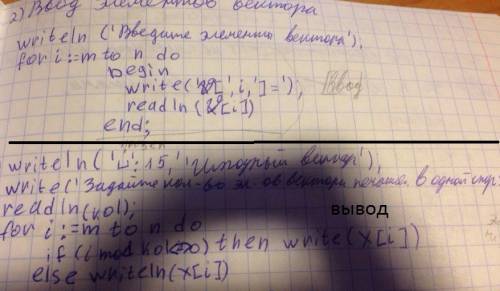 2) Ввод элементов вектора
writeln ('Введите элементы вектора');
for i:=m to n do
begin
write('X[',i,']='); Ввод
readln (X[i])
end;
writeln (' ':15,'Исходный вектор');
write('Задайте кол-во эл-ов вектора печат. в одной стр.
readln(kol);
вывод
for i:=m to n do
if (i mod kol<>0) then write(X[i])
else writeln(X[i])